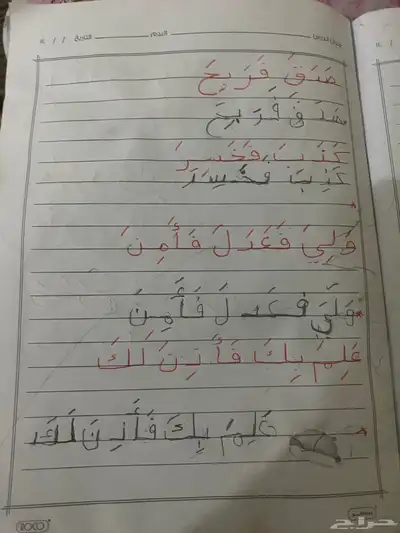 صَدَقَ فَرَبِحَ
صَدَقَ فَرَبِحَ
كَذَبَ فَخَسِرَ
كَذِبَ فَخَسِرَ
وَلِيَ فَعَدَلَ فَأَمِنَ
وَلِيَ فَعَدلَ فَأَمِنَ
عَلِمَ بِكَ فَأَذِنَ لَكَ
عَلِمَ بِكَ فَأَذِنَ لَكَ
حراج